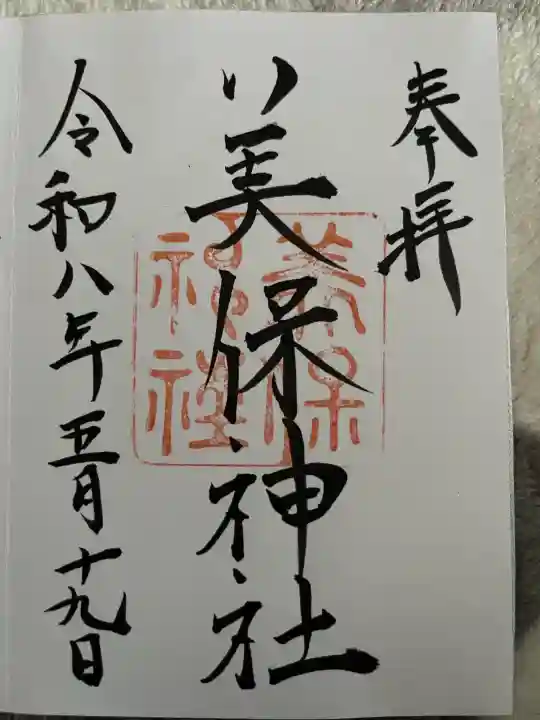 奉拝
美保神社
美保
神社
令和八年五月十九日